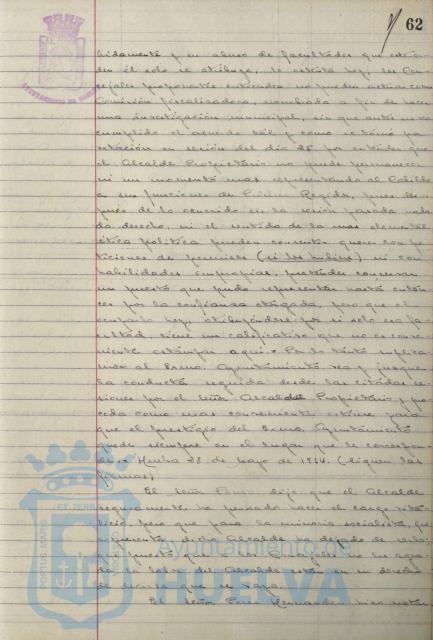 62
bidamente y en abuso de facultades que
el solo se atribuye, lo ostenta hoy, los Con-
cejales proponentes entienden no pueden actuar como
Comisión fiscalizadora, nombrada a fin de hacer
una investigación municipal, sin que antes no sea
cumplido el acuerdo tal y como se tomó
votación en sesión del día 25 por entender que
el Alcalde Propietario no puede permanecer
ni un momento mas representando al Cabildo
a sus funciones de Regidor, pues des-
pués de lo ocurrido en la sesión pasada
da derecho, ni el sentido de la mas elemental
ética política pueden consentir que con pe-
ticiones de (si las hubiere) ni con
habilidades impropias, pretenda conservar
un puesto que pudo representar hasta enton-
ces por la confianza otorgada, pero que el
ocuparlo hoy, atribuyéndose por si solo esa fa-
cultad, tiene un calificativo que no es conve-
niente estampar aquí. Por lo tanto suplica-
mos al Excmo. Ayuntamiento vea y juzgue
la conducta seguida desde las citadas se-
siones por el señor Alcalde Propietario y pro-
ceda como mas conveniente estime para
que el prestigio del Excmo. Ayuntamiento
quede siempre en el lugar que le correspon-
de. Huelva 28 de Mayo de 1914. (Siguen las
firmas)
El señor dijo que el Alcalde
seguramente ha pensado hacer el cargo vita-
licio, pero que para la minoria socialista, que
representa, dicho Alcalde ha dejado de serlo,
que puesto que a los Concejales no les agra-
da la labor del Alcalde está en su derecho
de decirle que se vaya.
El señor Perez Hernandez hizo
Ayuntamiento de
HUELVA